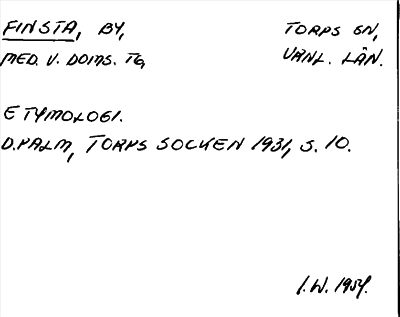 FINSTA, BY, TORPS SN,
MED. V. DOMS. TG, VRNL. LÄN.
ETYMOLOGI.
D. PALM, TORPS SOCKEN 1931, S. 10.
I.W. 1954.